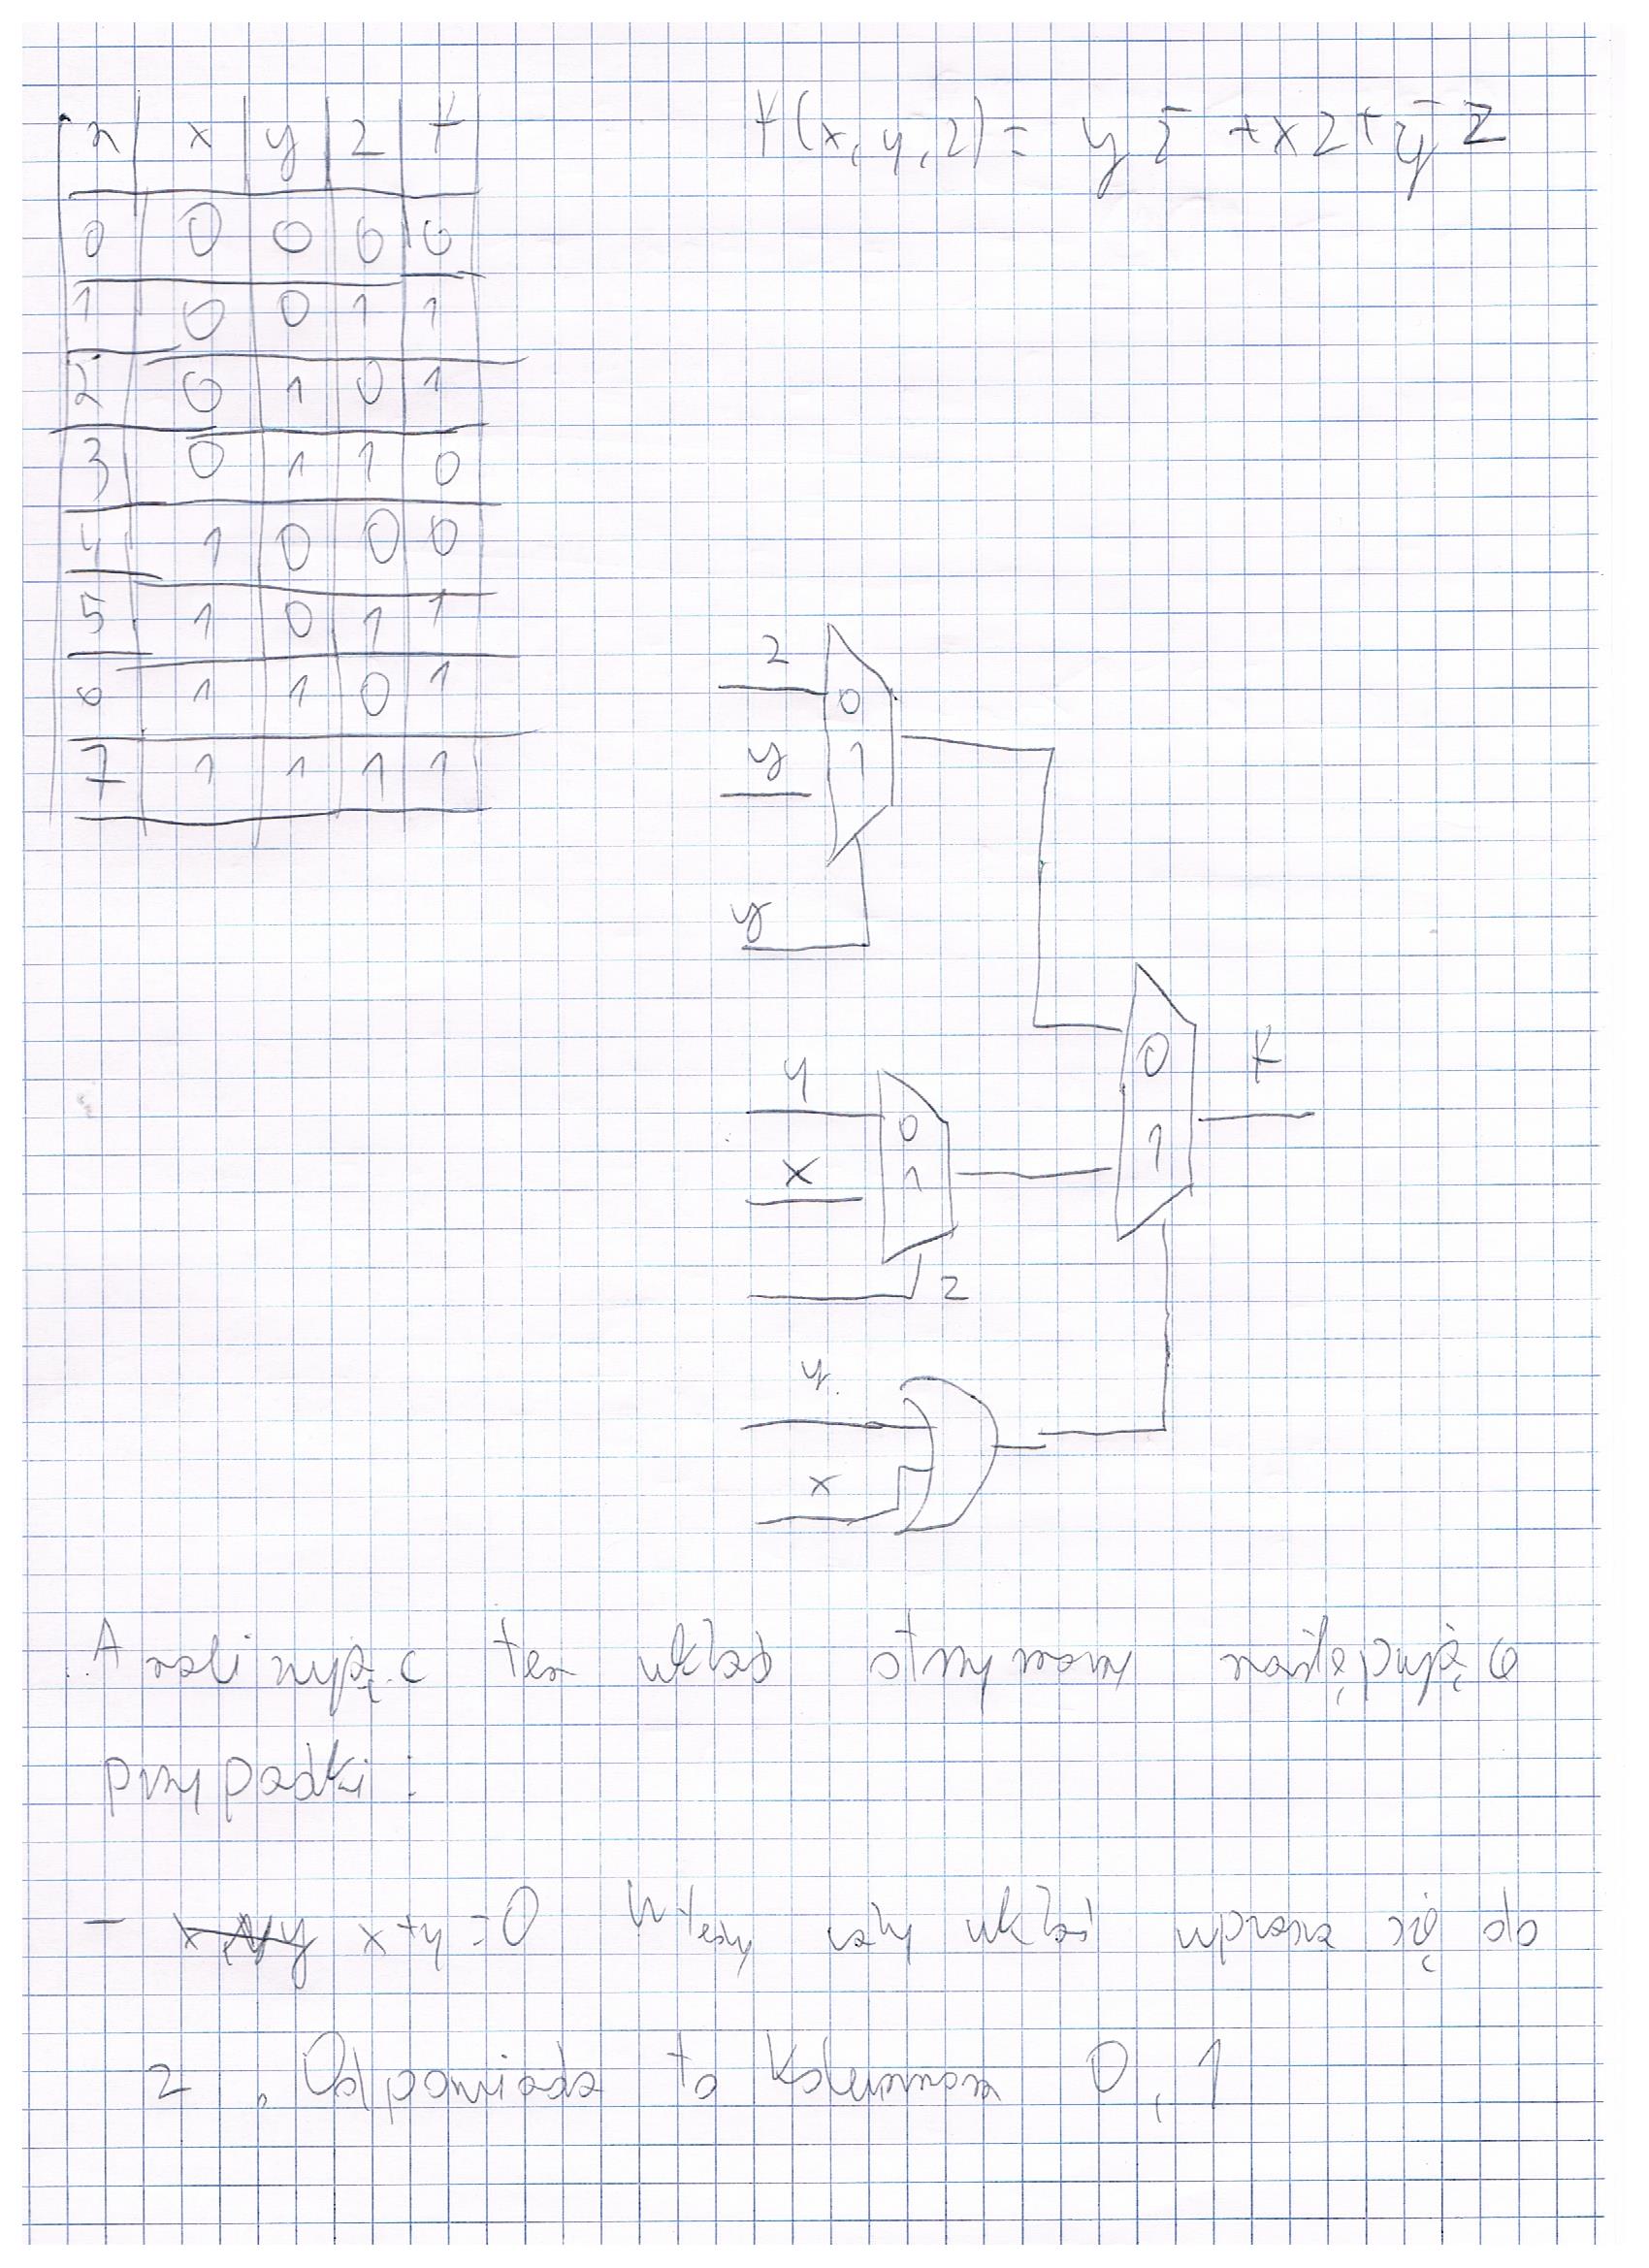 n x y z f
0 0 0 0 0
1 0 0 1 1
2 0 1 0 1
3 0 1 1 0
4 1 0 0 0
5 1 0 1 1
6 1 1 0 1
7 1 1 1 1
f(x, y, z) = y z̄ + x z + ȳ z
z
0
y
1
y
0
f
1
y
0
x
1
z
y
x
Analizując ten układ otrzymamy następujące
przypadki:
- x+y=0 Wtedy cały układ upraszcza się do
z. Odpowiada to kolumnom 0, 1